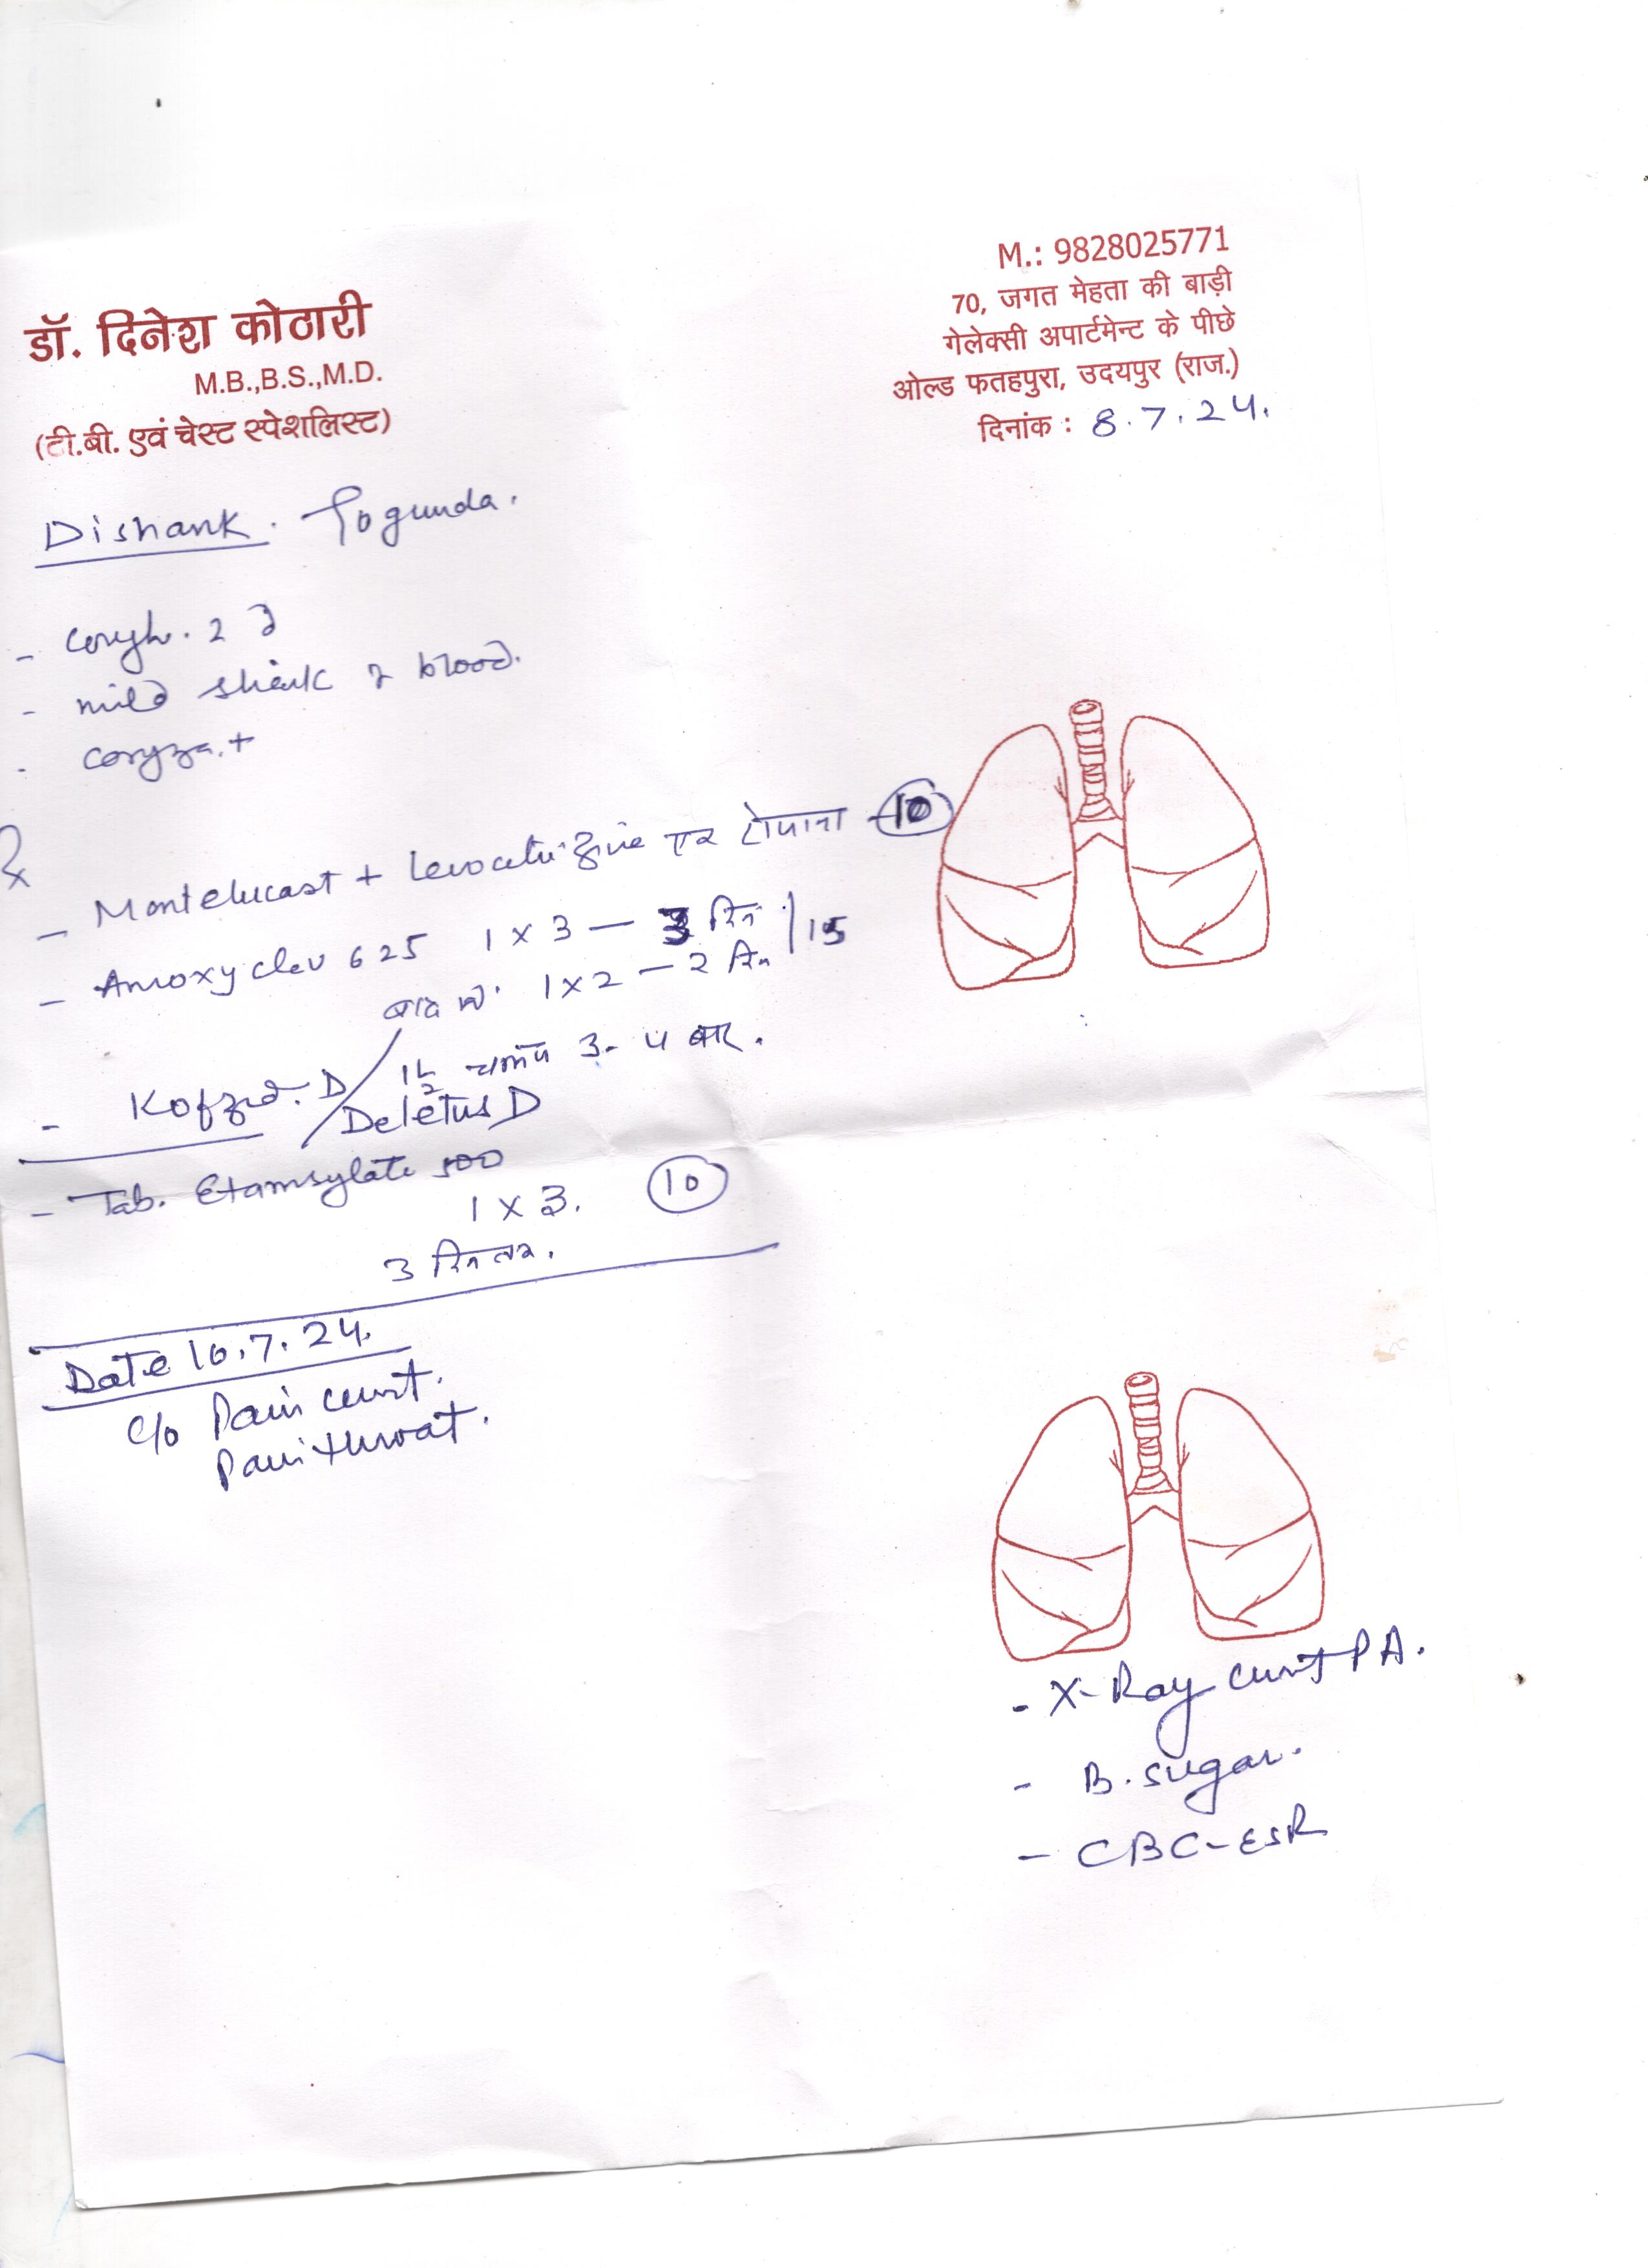 डॉ. दिनेश कोठारी
M.B.,B.S.,M.D.
(टी.बी. एवं चेस्ट स्पेशलिस्ट)
M.: 9828025771
70, जगत मेहता की बाड़ी
गेलेक्सी अपार्टमेन्ट के पीछे
ओल्ड फतहपुरा, उदयपुर (राज.)
दिनांक : 8.7.24.
Dishank. Gogunda.
- Cough. 2 d
- mild streak of blood.
- coryza.+
℞
- Montelucast + Levocetrizine एक रोजाना - 10
- Amoxyclav 625 1 x 3 - 3 दिन | 15
बाद में. 1 x 2 - 2 दिन
- Kofzed. D / 1½ चम्मच 3-4 बार.
Deletus D
- Tab. Etamsylate 500
1 x 3. 10
3 दिन तक.
Date 16.7.24.
c/o Pain chest.
Pain throat.
- X-Ray chest PA.
- B. sugar.
- CBC-ESR